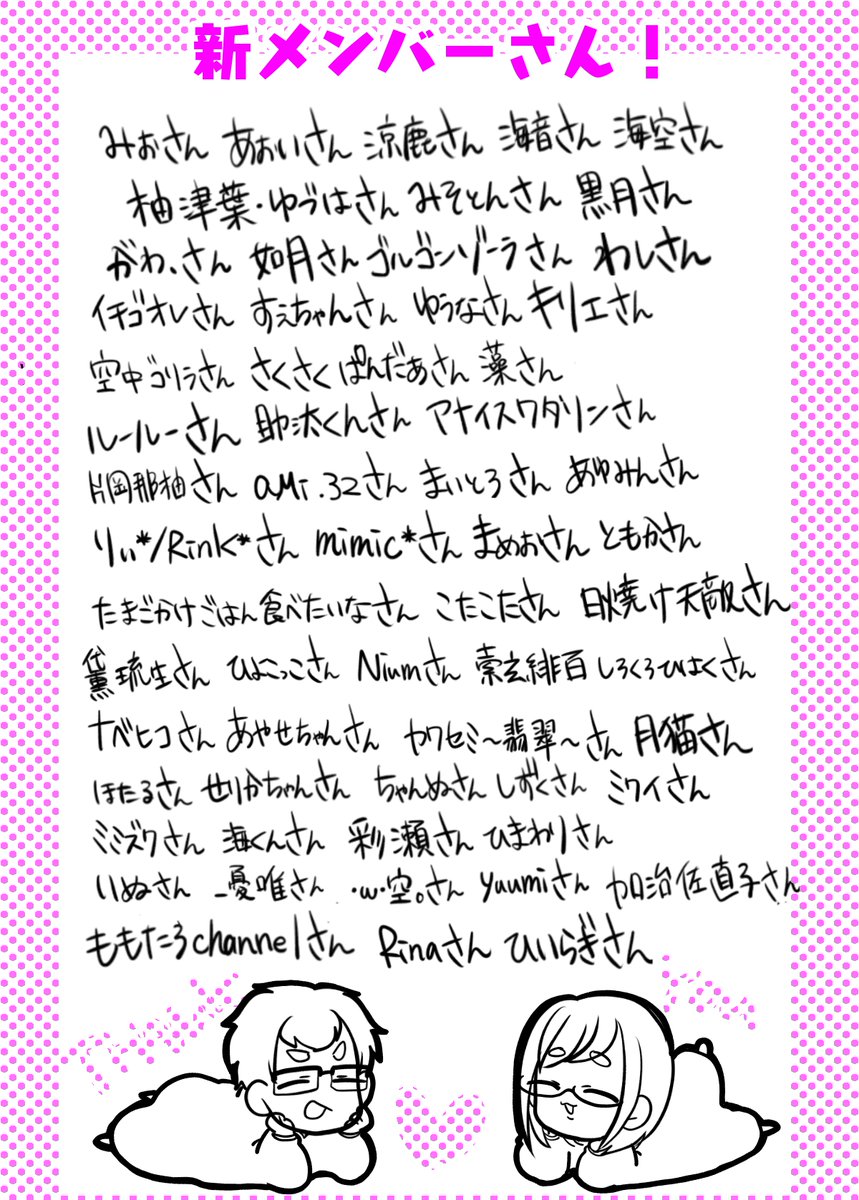 新メンバーさん！
みおさん あぉいさん 涼鹿さん 海音さん 海空さん
柚津葉・ゆづはさん みそとんさん 黒月さん
がわ、さん 如月さん ゴルゴンゾーラさん わしさん
イチゴオレさん すぇちゃんさん ゆうなさん キリエさん
空中ゴリラさん さくさくぱんだぁさん 藻さん
ルールーさん 助汰くんさん アナイスワタリンさん
片岡那柚さん aMi.32さん まいとろさん あゆみんさん
りぃ*/Rink*さん mimic*さん まめおさん ともかさん
たまごかけごはん食べたいなさん こたこたさん 日焼け天敵さん
黛琉生さん ひよこっこさん Niumさん 緋百 しろくろひはくさん
ナベヒコさん あやせちゃんさん カワセミ〜翡翠〜さん 月猫さん
ほたるさん せりかちゃんさん ちゃんぬさん しずくさん ミクイさん
ミミズクさん 海くんさん 彩瀬さん ひまわりさん
いぬさん _憂唯さん ・ω・空。さん yuumiさん 加治佐直子さん
ももたろchannelさん Rinaさん ひいらぎさん